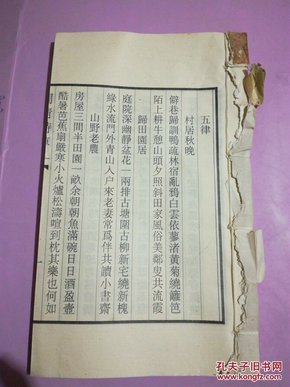 五律
村居秋晚
僻巷歸訓鴨疏林宿亂鴉白雲依夢渚黃菊繞籬笆
陌上耕牛憩山頭夕照斜田家風俗美鄰叟共流霞
歸田園居
庭院深幽靜盆花一兩排古塘圍古柳新宅繞新槐
綠水流門外青山入戶來老妻常爲伴共讀小書齋
山野老農
房屋三間半田園一畝余朝朝魚滿碗日日酒盈壺
酷暑芭蕉扇嚴寒小火爐松濤喧到枕其樂也何如
孔夫子旧书网